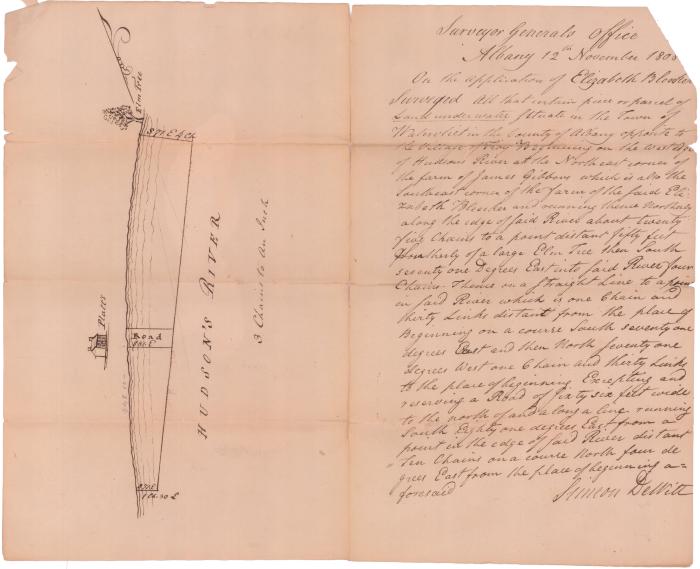 Elm Tree
S 71 E 4 Ch
HUDSON'S RIVER
3 Chains to An Inch
Platts
Road
S 81 E
S 71 E
1 Ch. 30 L
Surveyor Generals Office
Albany 12th November 180
On the application of Elizabeth Bleecker
Surveyed All that certain piece or parcel of
Land under water situate in the Town of
Watervliet in the County of Albany opposite to
the Village of Troy Beginning on the West
of Hudsons River at the Northeast corner of
the farm of James Gibbons which is also the
Southeast corner of the farm of the said Eli-
zabeth Bleecker and running thence Northerly
along the edge of said River about twenty
five Chains to a point distant fifty feet
Southerly of a large Elm Tree then South
seventy one Degrees East into said River four
Chains Thence on a straight Line to a point
in said River which is one Chain and
thirty Links distant from the place of
Beginning on a course South seventy one
degrees East and then North seventy one
degrees West one Chain and thirty Links
to the place of beginning Excepting and
reserving a Road of sixty six feet wide
to the north of and along a line running
South Eighty one degrees East from a
point in the edge of said River distant
Ten Chains on a course North four de
grees East from the place of beginning a=
foresaid
Simeon DeWitt